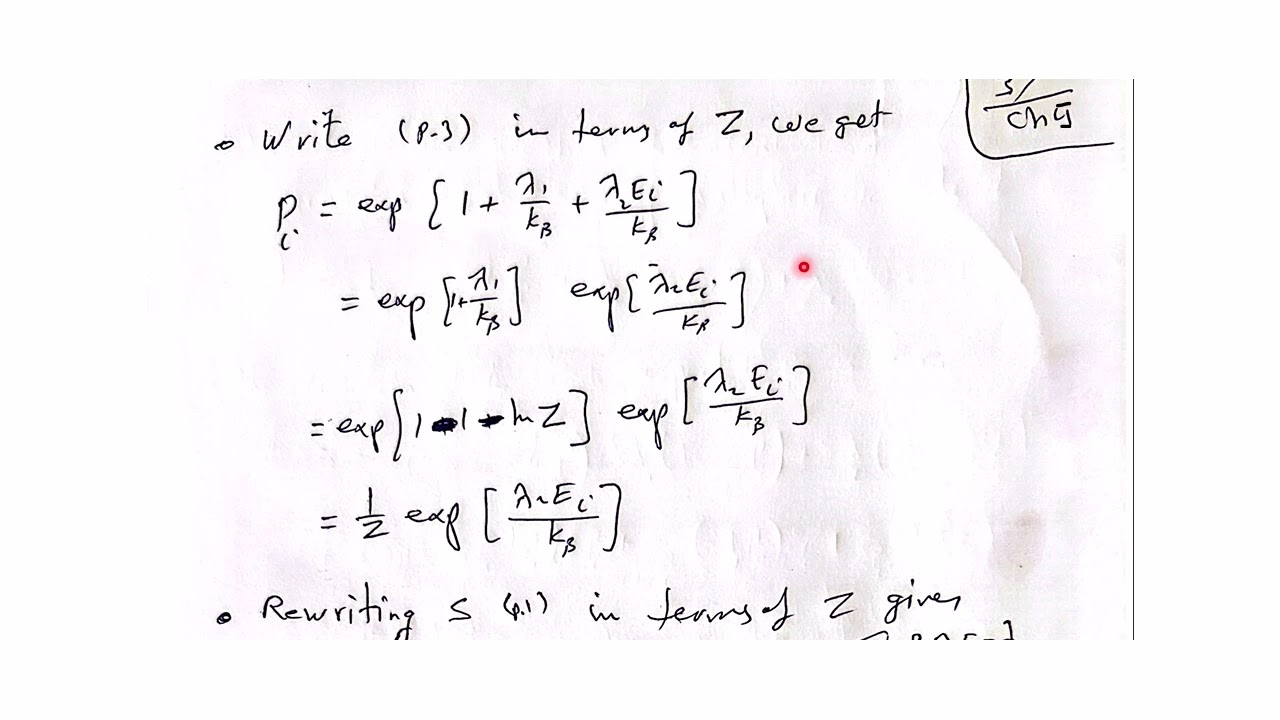 S/
ch 5
• Write (P.3) in terms of Z, we get
P_i = exp [ 1 + λ₁/k_β + λ₂E_i/k_β ]
= exp [1+ λ₁/k_β ] exp[ λ₂E_i/k_β ]
= exp[ 1 - 1 - ln Z ] exp [ λ₂E_i/k_β ]
= 1/Z exp [ λ₂E_i/k_β ]
• Rewriting S (p.1) in terms of Z gives